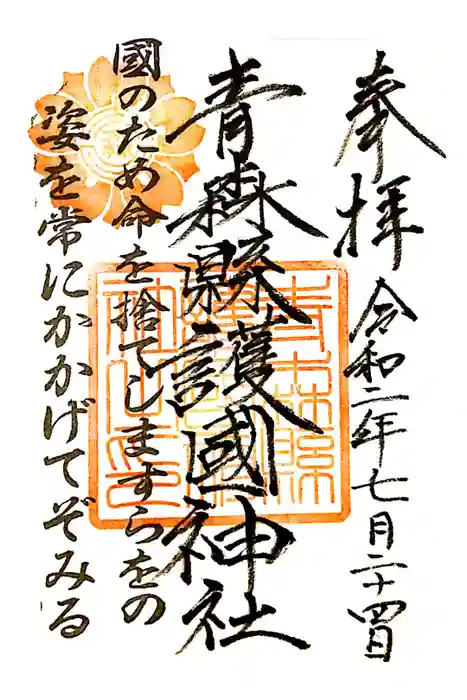 奉拝 令和二年七月二十四日
青森縣護國神社
國のため命を捨てしますらをの
姿を常にかかげてぞみる
青森縣